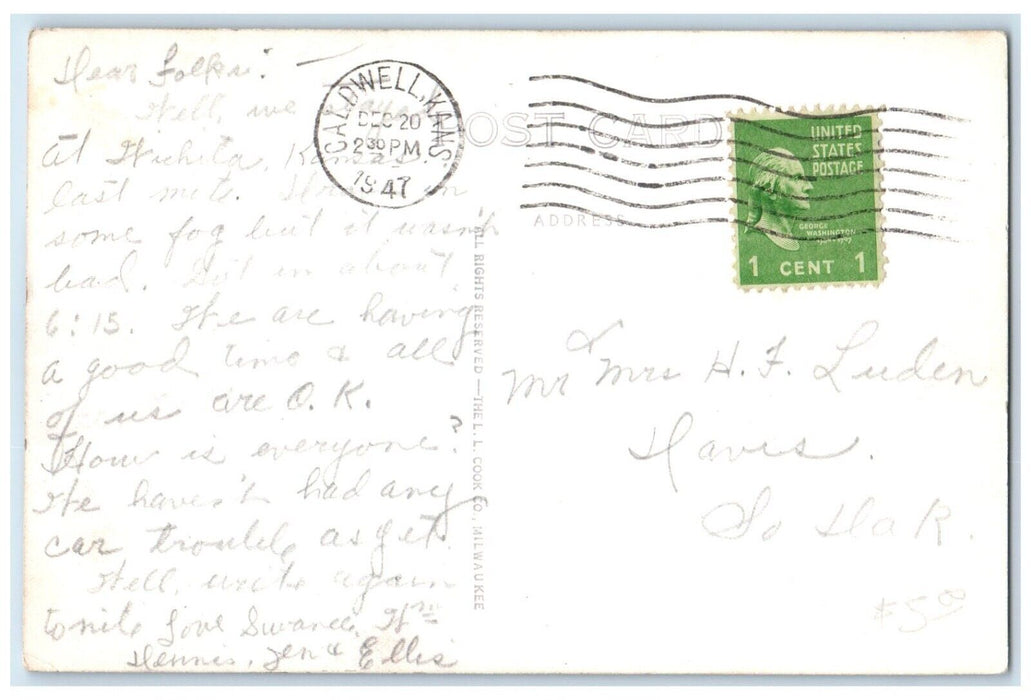 Dear Folks:
Well, we
at Wichita, Kansas
last nite. in
some fog but it wasn't
bad. Got in about
6:15. We are having
a good time & all
of us are O.K.
How is everyone?
We haven't had any
car trouble as yet.
Well, write again
to nite Love
Dennis, & Ellis
CALDWELL, KANS.
DEC 20
2 30 PM
1947
POST CARD
ADDRESS
ALL RIGHTS RESERVED — THE L. L. COOK CO., MILWAUKEE
UNITED
STATES
POSTAGE
GEORGE
WASHINGTON
1 CENT 1
Mr & Mrs H. F. Luden
Davis.
So Dak.
$5.00